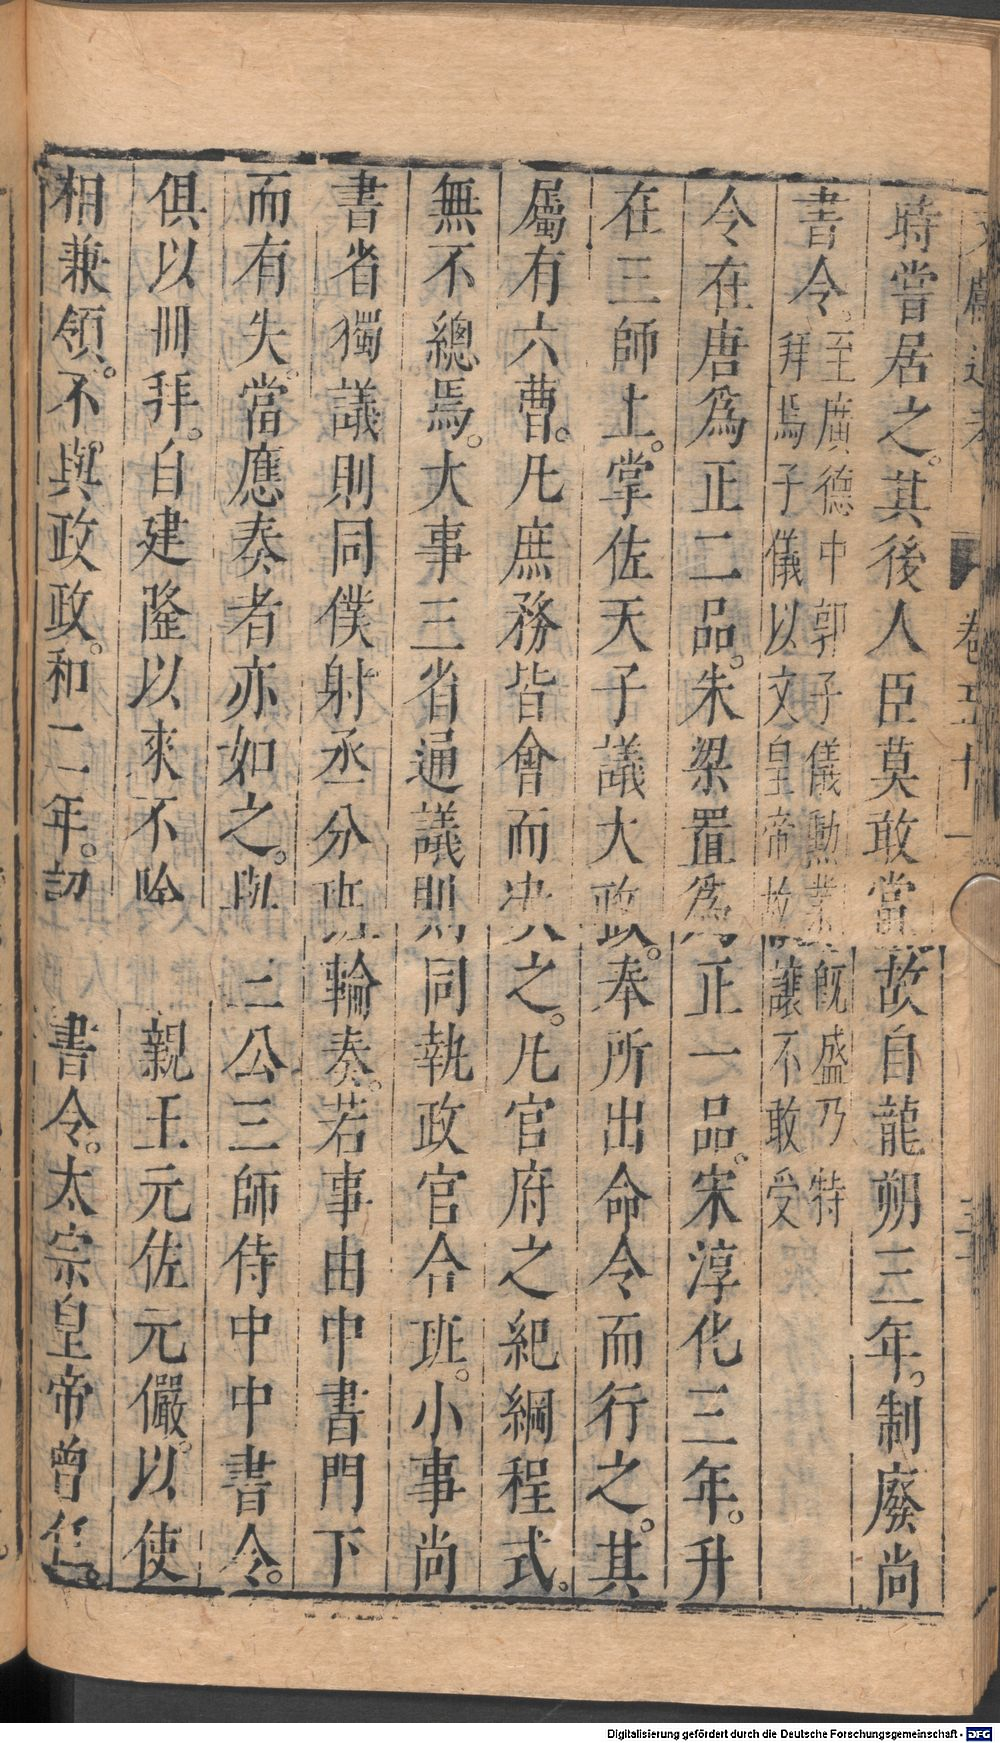 文獻通考 卷五十一
時嘗居之。其後人臣莫敢當故自龍朔三年。制廢尚
書令。至廣德中郭子儀勳業旣盛乃特
拜焉子儀以文皇帝故讓不敢受
令在唐爲正二品。朱梁置爲正一品。宋淳化三年。升
在三師上。掌佐天子議大政。奉所出命令而行之。其
屬有六曹。凡庶務皆會而决之。凡官府之紀綱程式。
無不總焉。大事三省通議則同執政官合班。小事尚
書省獨議則同僕射丞分班輪奏。若事由中書門下
而有失。當應奏者亦如之。與三公三師侍中中書令。
俱以冊拜。自建隆以來不 親王元佐元儼。以使
相兼領。不與政政。和二年。詔 書令。太宗皇帝曾任。
Digitalisierung gefördert durch die Deutsche Forschungsgemeinschaft - DFG